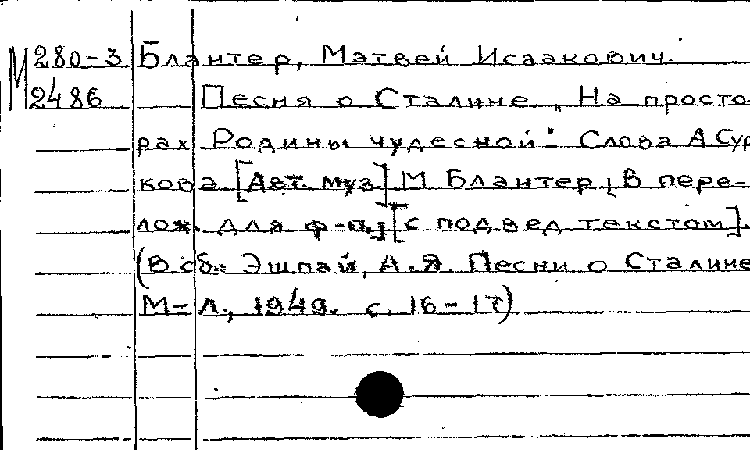 М 280-3 Блантер, Матвей Исаакович.
2486 Песня о Сталине „На просто-
рах Родины чудесной". Слова А Сур
кова [Авт. муз] М Блантер, [В пере-
лож. для ф-п.] [с подвед текстом].
(В сб.: Эшпай, А.Я. Песни о Сталине
М-Л., 1949. с. 16-17)